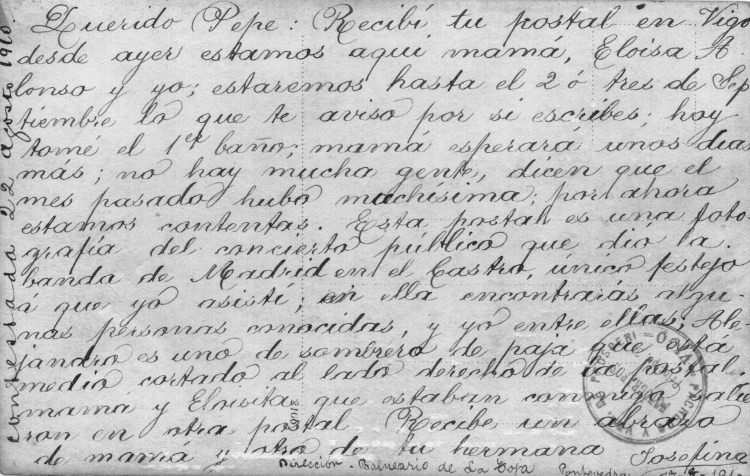 Querido Pepe: Recibí tu postal en Vigo
desde ayer estamos aquí mamá, Eloisa A
lonso y yo; estaremos hasta el 2 ó tres de Sep
tiembre lo que te aviso por si escribes; hoy
tomé el 1er baño; mamá esperará unos dias
más; no hay mucha gente, dicen que el
mes pasado hubo muchísima; por ahora
estamos contentas. Esta postal es una foto-
grafía del concierto público que dió la
banda de Madrid en el Castro, único festejo
á que yo asistí; en ella encontrarás algu-
nas personas conocidas, y yo entre ellas; Ale
jandro es uno de sombrero de paja que está
medio cortado al lado derecho de la postal.
mamá y Eloisita que estaban conmigo salie
ron en otra postal Recibe un abrazo
de mamá y otro de tu hermana Josefina
Dirección. Balneario de La Toja Pontevedra
contestada 22 agosto 1910.